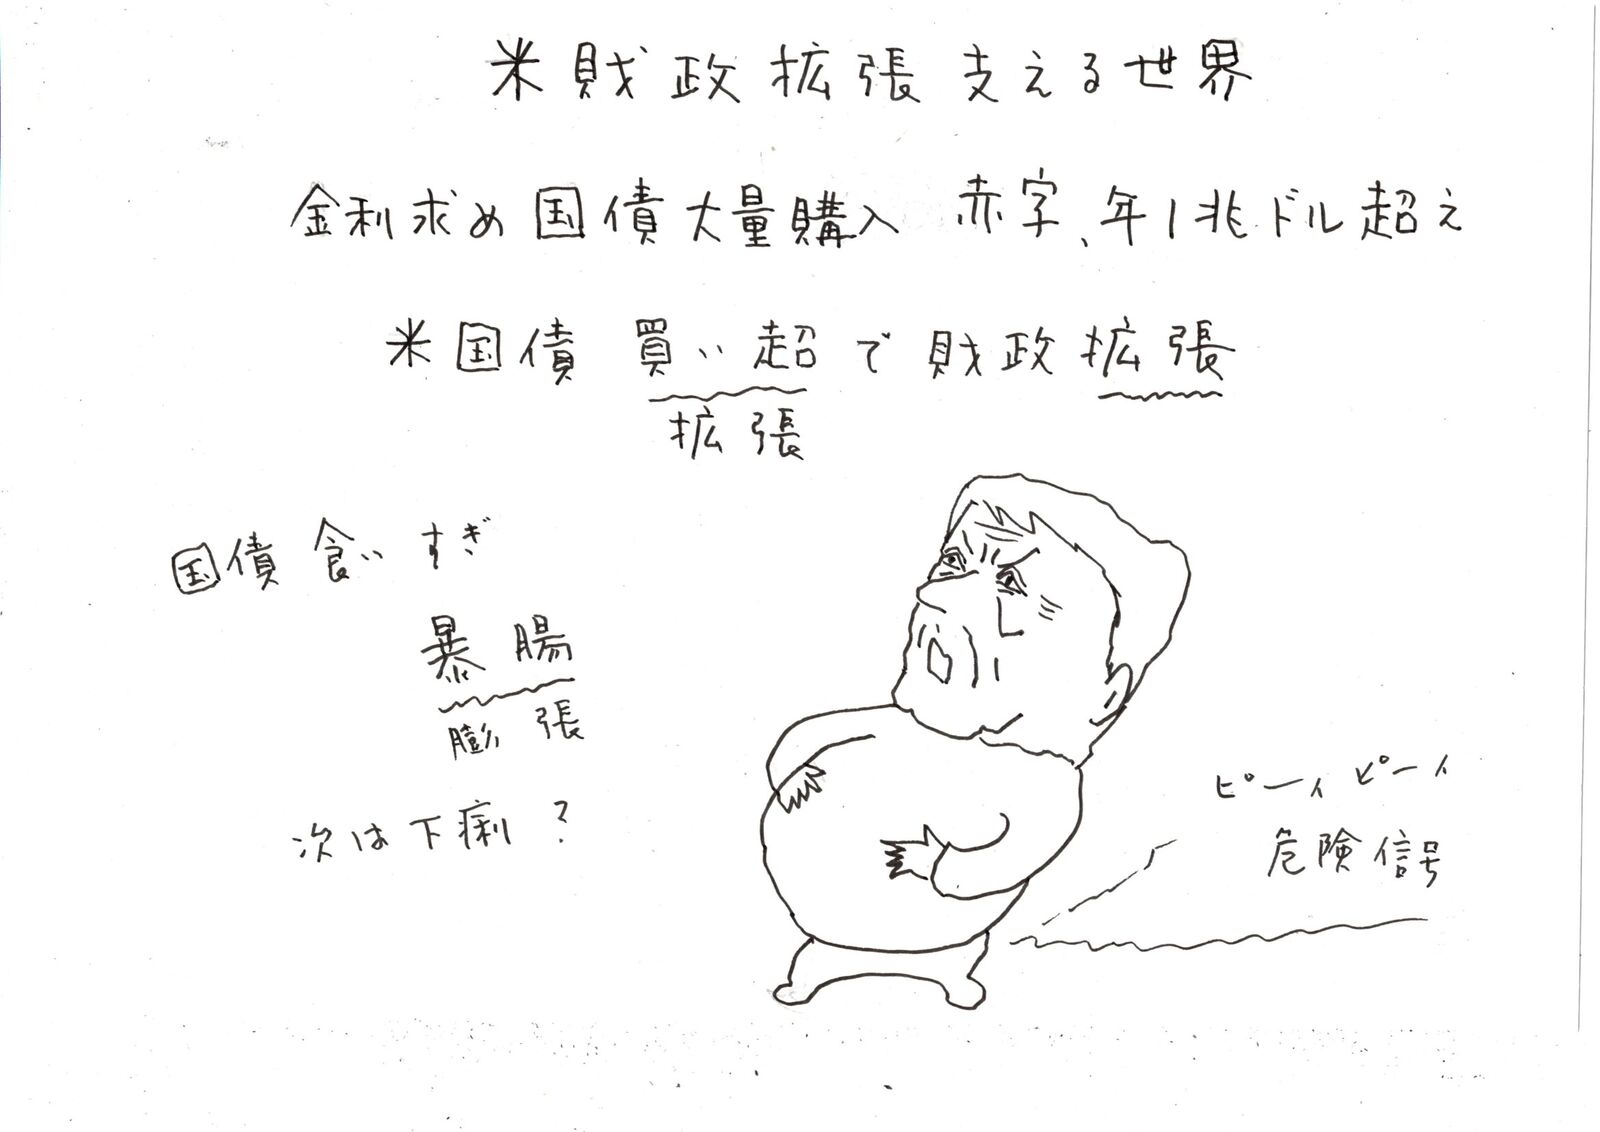 米財政拡張支える世界
金利求め国債大量購入 赤字、年1兆ドル超え
米国債 買い超で財政拡張
拡張
国債食いすぎ
暴腸
膨張
次は下痢?
ピーィピーィ
危険信号